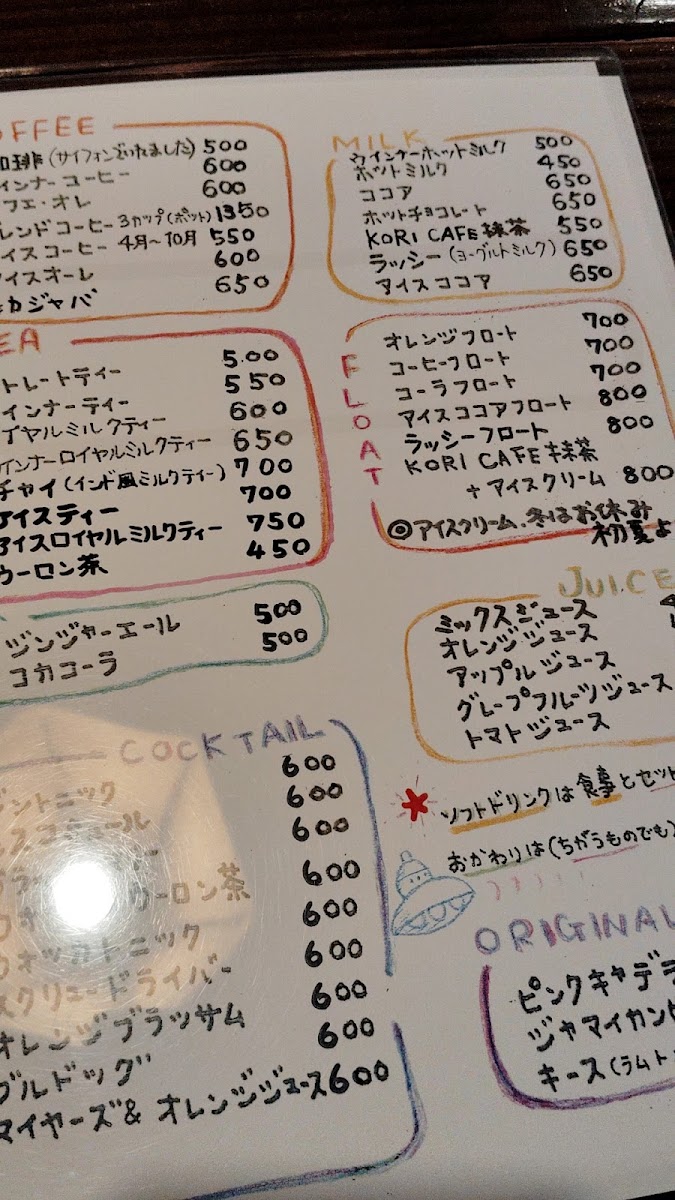 OFFEE
珈琲(サイフォンでいれました) 500
インナーコーヒー 600
フェ・オレ 600
レンドコーヒー 3カップ(ポット) 1350
イスコーヒー 4月〜10月 550
イスオーレ 600
カジャバ 650
MILK
ウインナーホットミルク 500
ホットミルク 450
ココア 650
ホットチョコレート 650
KORI CAFE 抹茶 550
ラッシー(ヨーグルトミルク) 650
アイスココア 650
EA
トレートティー 500
インナーティー 550
イヤルミルクティー 600
インナーロイヤルミルクティー 650
チャイ(インド風ミルクティー) 700
アイスティー 700
アイスロイヤルミルクティー 750
ウーロン茶 450
FLOAT
オレンジフロート 700
コーヒーフロート 700
コーラフロート 700
アイスココアフロート 800
ラッシーフロート 800
KORI CAFE 抹茶
+アイスクリーム 800
◎アイスクリーム、冬はお休み
初夏よ
ジンジャーエール 500
コカコーラ 500
JUICE
ミックスジュース
オレンジジュース
アップルジュース
グレープフルーツジュース
トマトジュース
COCKTAIL
ジントニック 600
600
600
ウーロン茶 600
ウォッカトニック 600
スクリュードライバー 600
オレンジブラッサム 600
ブルドッグ 600
マイヤーズ& オレンジジュース 600
ソフトドリンクは食事とセット
おかわりは(ちがうものでも)
ORIGINAL
ピンクキャデラ
ジャマイカン
キース(ラムト